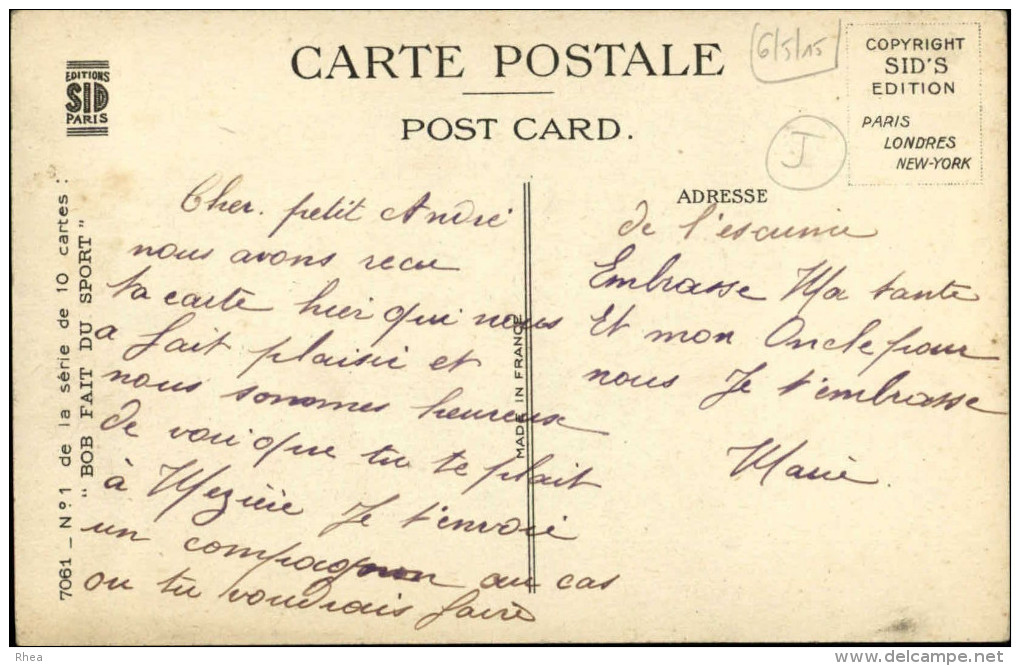 CARTE POSTALE
POST CARD.
EDITIONS
SID
PARIS
6/5/15
J
COPYRIGHT
SID'S
EDITION
PARIS
LONDRES
NEW-YORK
ADRESSE
7061 _ Nº1 de la série de 10 cartes :
" BOB FAIT DU SPORT "
MADE IN FRANCE
Cher. petit André
nous avons recu
ta carte hier qui nous
a fait plaisir et
nous sommes heureux
de voir que tu te plait
à Mezière Je t'envoie
un compagnon au cas
ou tu voudrais faire
de l'escrime
Embrasse Ma tante
Et mon Oncle pour
nous Je t'embrasse
Marie
Rhea
www.delcampe.net